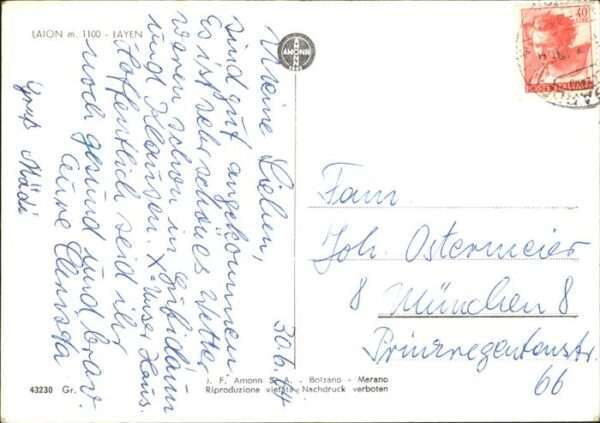 LAION m. 1100 - LAYEN
AMONN
40
LIRE
30.6.64
Meine Lieben,
sind gut angekommen
Es ist sehr schönes Wetter
waren schon in
und Klausen. X Unser Haus.
Hoffentlich seid ihr
noch gesund und brav.
Eure
Gruß Mädi
Fam.
Joh. Ostermeier
8 München 8
Prinzregentenstr
66
43230 Gr.
J. F. Amonn S. A. - Bolzano - Merano
Riproduzione vietata - Nachdruck verboten